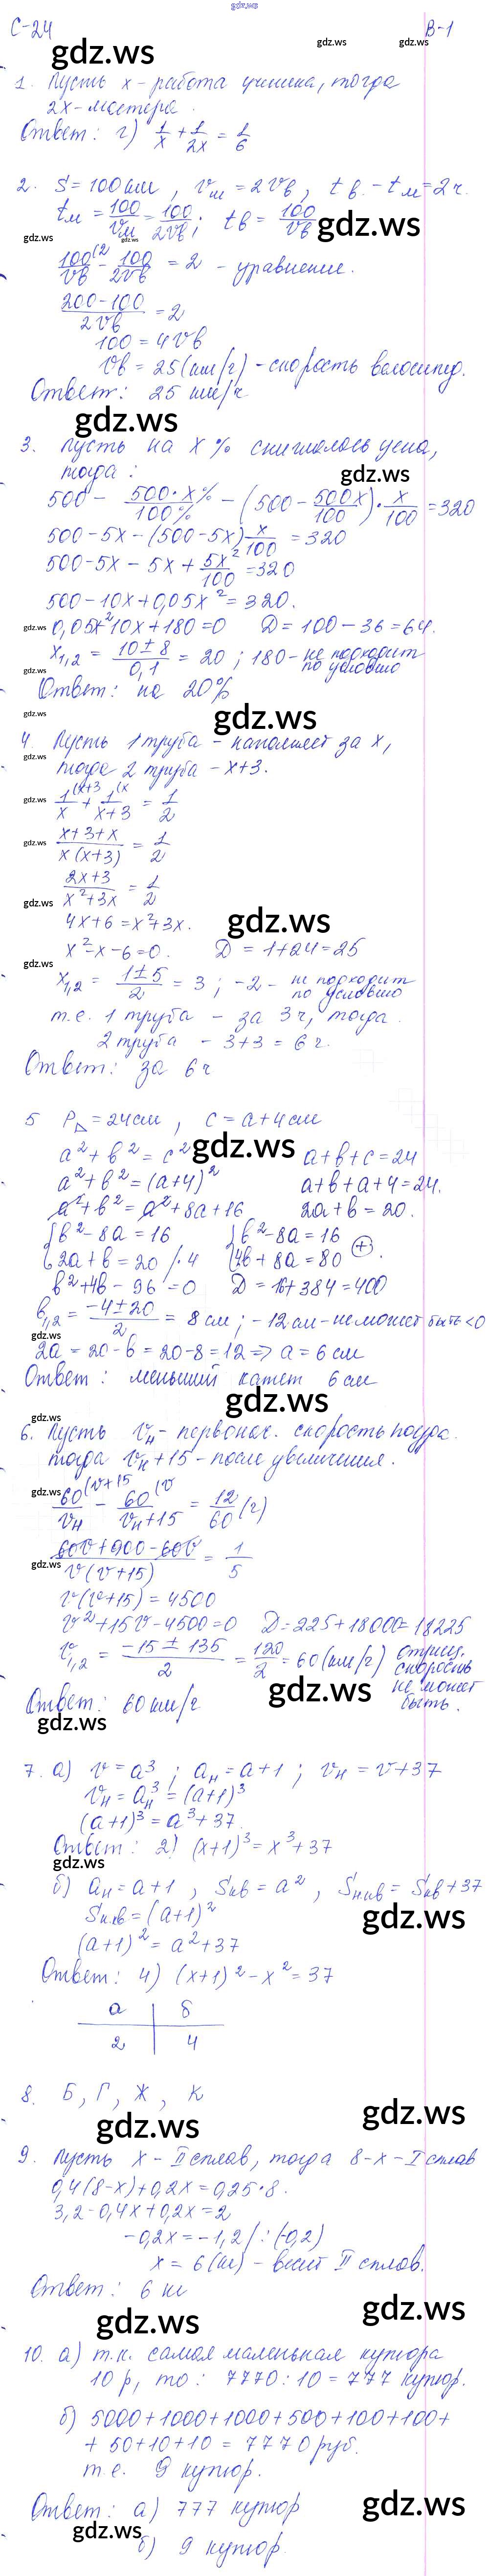 gdz.ws
С-24 В-1
1. Пусть x - работа ученика, тогда
2x - мастера.
Ответ: г) 1/x + 1/2x = 1/6
2. S = 100 км, vм = 2vв, tв. - tм = 2 ч.
tм = 100/vм = 100/2vв; tв = 100/vв
100(2/vв - 100/2vв = 2 - уравнение.
200-100/2vв = 2
100 = 4vв
vв = 25 (км/ч) - скорость велосипед.
Ответ: 25 км/ч
3. Пусть на x % снижалось цена,
тогда:
500 - 500·x%/100% - (500 - 500x/100)·x/100 = 320
500 - 5x - (500 - 5x) x/100 = 320
500 - 5x - 5x + 5x²/100 = 320
500 - 10x + 0,05x² = 320.
0,05x² 10x + 180 = 0 D = 100 - 36 = 64.
x1,2 = 10 ± 8/0,1 = 20; 180 - не подходит по условию
Ответ: на 20%
4. Пусть 1 труба - наполняет за x,
тогда 2 труба - x+3.
1(x+3/x + 1(x/x+3 = 1/2
x+3+x/x(x+3) = 1/2
2x+3/x²+3x = 1/2
4x+6 = x²+3x.
x²-x-6=0. D = 1+24=25
x1,2 = 1±5/2 = 3; -2 - не подходит по условию
т.е. 1 труба - за 3ч, тогда.
2 труба - 3+3 = 6 ч.
Ответ: за 6ч
5 P△ = 24 см, c = a+4 см
a² + b² = c² a+b+c = 24
a² + b² = (a+4)² a+b+a+4 = 24.
a²+b² = a²+8a+16 2a+b = 20.
{b²-8a = 16 {b²-8a = 16
{2a+b = 20 /·4 {4b+8a = 80 (+).
b²+4b - 96 = 0 D = 16+384 = 400
b1,2 = -4±20/2 = 8 см; -12 см - не может быть <0
2a = 20-b = 20-8 = 12 => a = 6 см
Ответ: меньший катет 6 см
6. Пусть vн - первонач. скорость поезда.
тогда vн+15 - после увеличения.
60(v+15/vн - 60(v/vн+15 = 12/60 (ч)
60v+900-60v/v(v+15) = 1/5
v(v+15) = 4500
v²+15v-4500=0 D = 225+18000 = 18225
v1,2 = -15 ± 135/2 = 120/2 = 60 (км/ч) отриц. скорость не может быть.
Ответ: 60 км/ч
7. а) v = a³; aн = a+1; vн = v+37
vн = aн³ = (a+1)³
(a+1)³ = a³+37.
Ответ: 2) (x+1)³ = x³+37
б) aн = a+1, Sкв = a², Sн кв = Sкв+37
Sн.кв = (a+1)²
(a+1)² = a²+37
Ответ: 4) (x+1)² - x² = 37
а | б
2 | 4
8. Б, Г, Ж, К
9. Пусть x - II сплав, тогда 8-x - I сплав
0,4(8-x)+0,2x = 0,25·8.
3,2-0,4x+0,2x = 2
-0,2x = -1,2 /:(-0,2)
x = 6 (кг) - весит II сплав.
Ответ: 6 кг
10. а) т.к. самая маленькая купюра
10 р, то: 7770:10 = 777 купюр.
б) 5000+1000+1000+500+100+100+
+ 50+10+10 = 7770 руб.
т.е. 9 купюр.
Ответ: а) 777 купюр
б) 9 купюр.